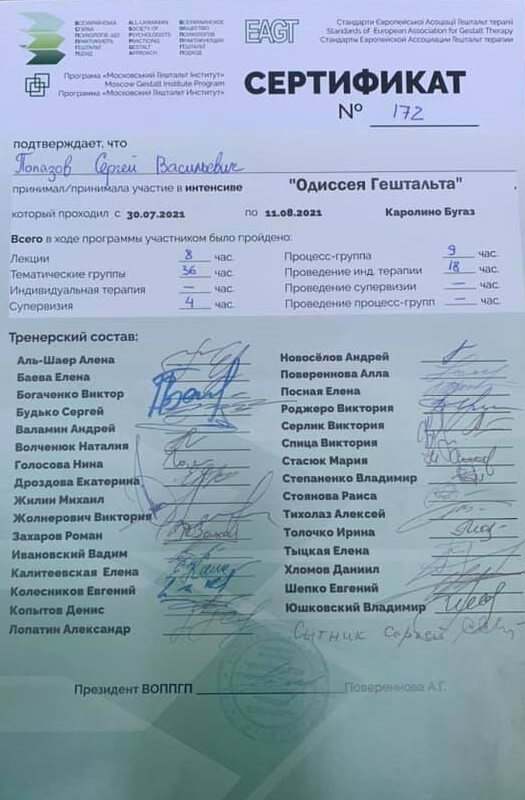 ВСЕУКРАЇНСЬКА СПІЛКА ПСИХОЛОГІВ, ЩО ПРАКТИКУЮТЬ ГЕШТАЛЬТ ПІДХІД
ALL-UKRAINIAN SOCIETY OF PSYCHOLOGISTS PRACTISING GESTALT APPROACH
ВСЕУКРАИНСКОЕ ОБЩЕСТВО ПСИХОЛОГОВ ПРАКТИКУЮЩИХ ГЕШТАЛЬТ ПОДХОД
EAGT
Стандарти Європейської Асоціації Гештальт терапії
Standards of European Association for Gestalt Therapy
Стандарты Европейской Ассоциации Гештальт терапии
Програма «Московський Гештальт Інститут»
Moscow Gestalt Institute Program
Программа «Московский Гештальт Институт»
СЕРТИФИКАТ
№ 172
подтверждает, что
Попазов Сергей Васильевич
принимал/принимала участие в интенсиве "Одиссея Гештальта",
который проходил с 30.07.2021 по 11.08.2021 Каролино Бугаз
Всего в ходе программы участником было пройдено:
Лекции 8 час.
Тематические группы 36 час.
Индивидуальная терапия — час.
Супервизия 4 час.
Процесс-группа 9 час.
Проведение инд. терапии 18 час.
Проведение супервизии — час.
Проведение процесс-групп — час.
Тренерский состав:
Аль-Шаер Алена
Баева Елена
Богаченко Виктор
Будько Сергей
Валамин Андрей
Волченюк Наталия
Голосова Нина
Дроздова Екатерина
Жилин Михаил
Жолнерович Виктория
Захаров Роман
Ивановский Вадим
Калитеевская Елена
Колесников Евгений
Копытов Денис
Лопатин Александр
Новосёлов Андрей
Повереннова Алла
Посная Елена
Роджеро Виктория
Серлик Виктория
Спица Виктория
Стасюк Мария
Степаненко Владимир
Стоянова Раиса
Тихолаз Алексей
Толочко Ирина
Тыцкая Елена
Хломов Даниил
Шепко Евгений
Юшковский Владимир
Сытник Сергей
Президент ВОППГП Повереннова А.Г.